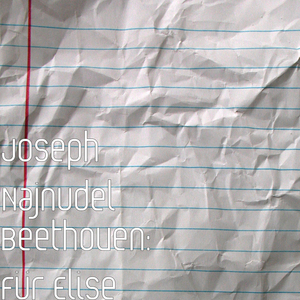 Joseph
Najnudel
Beethoven:
Für Elise